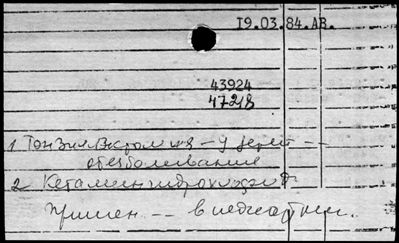 I9.03.84.АВ.
43924
47218
1 Тонзиллэктомия – у детей --
обезболивание
2 Кетамин гидрохлорид
примен -- в педиатрии.